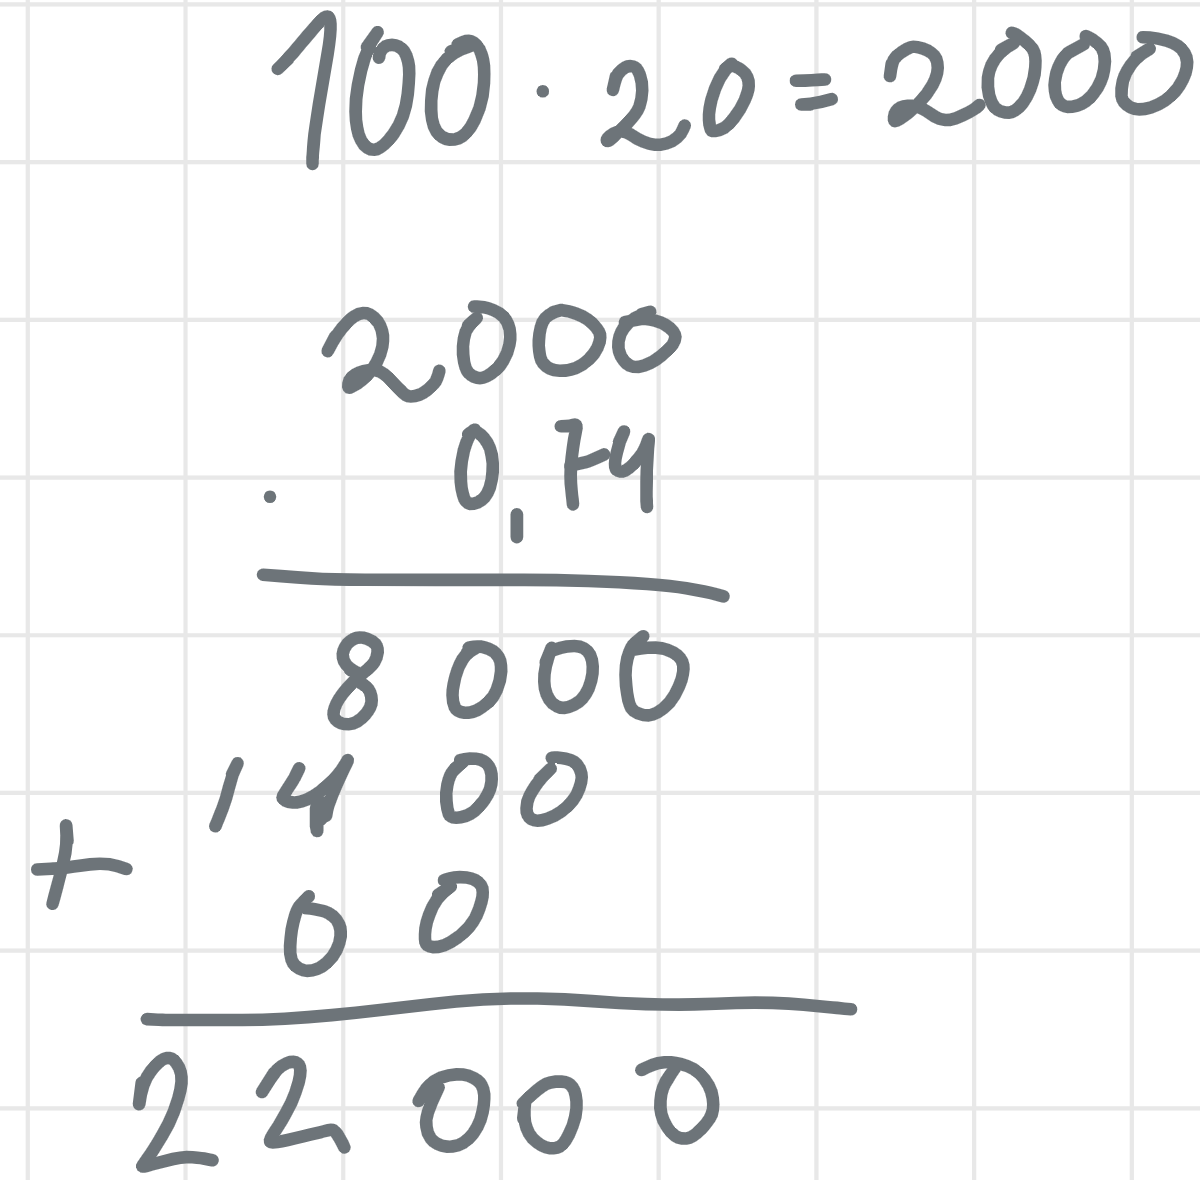 100 · 20 = 2000
2000
· 0,74
8 000
14 00
+
0 0
22 000